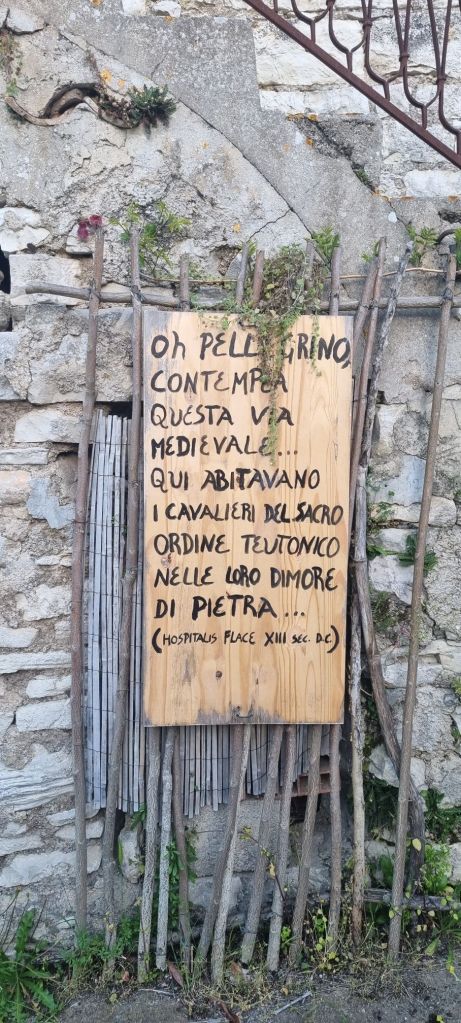 Oh PELLEGRINO,
CONTEMPLA
QUESTA VIA
MEDIEVALE...
QUI ABITAVANO
I CAVALIERI DEL SACRO
ORDINE TEUTONICO
NELLE LORO DIMORE
DI PIETRA...
(HOSPITALIS FLACE XIII SEC. D.C.)